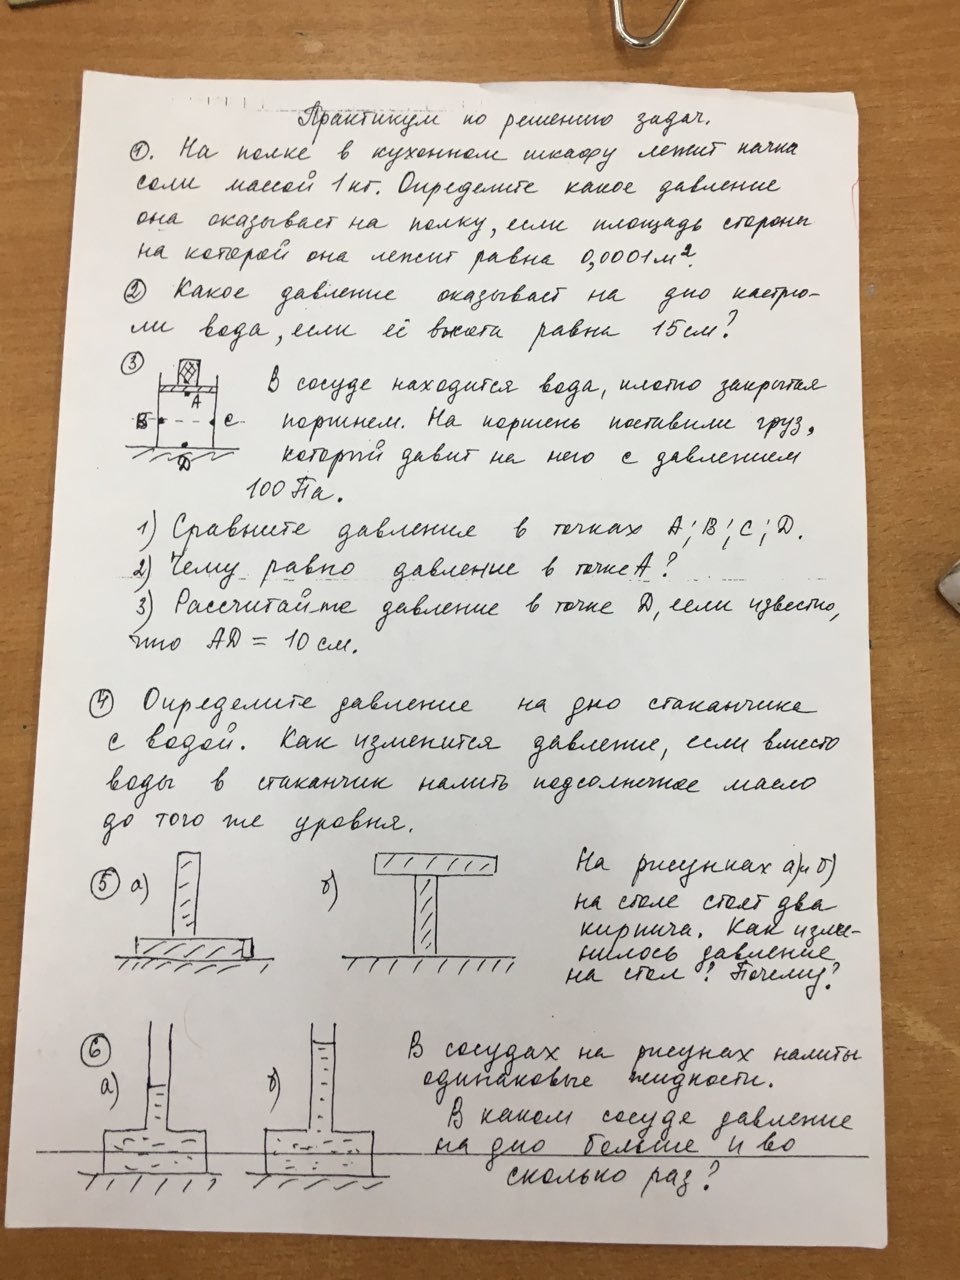 Практикум по решению задач.
1. На полке в кухонном шкафу лежит пачка
соли массой 1 кг. Определите какое давление
она оказывает на полку, если площадь стороны
на которой она лежит равна 0,0001 м².
2 Какое давление оказывает на дно кастрю-
ли вода, если её высота равна 15 см?
3
А
В
С
D
В сосуде находится вода, плотно закрытая
поршнем. На поршень поставили груз,
который давит на него с давлением
100 Па.
1) Сравните давления в точках А; В; С; D.
2) Чему равно давление в точке А?
3) Рассчитайте давление в точке D, если известно,
что AD = 10 см.
4 Определите давление на дно стаканчика
с водой. Как изменится давление, если вместо
воды в стаканчик налить подсолнечное масло
до того же уровня.
5 а) б)
На рисунках а) и б)
на столе стоят два
кирпича. Как изме-
нилось давление
на стол? Почему?
6
а) б)
В сосудах на рисунах налиты
одинаковые жидкости.
В каком сосуде давление
на дно больше и во
сколько раз?